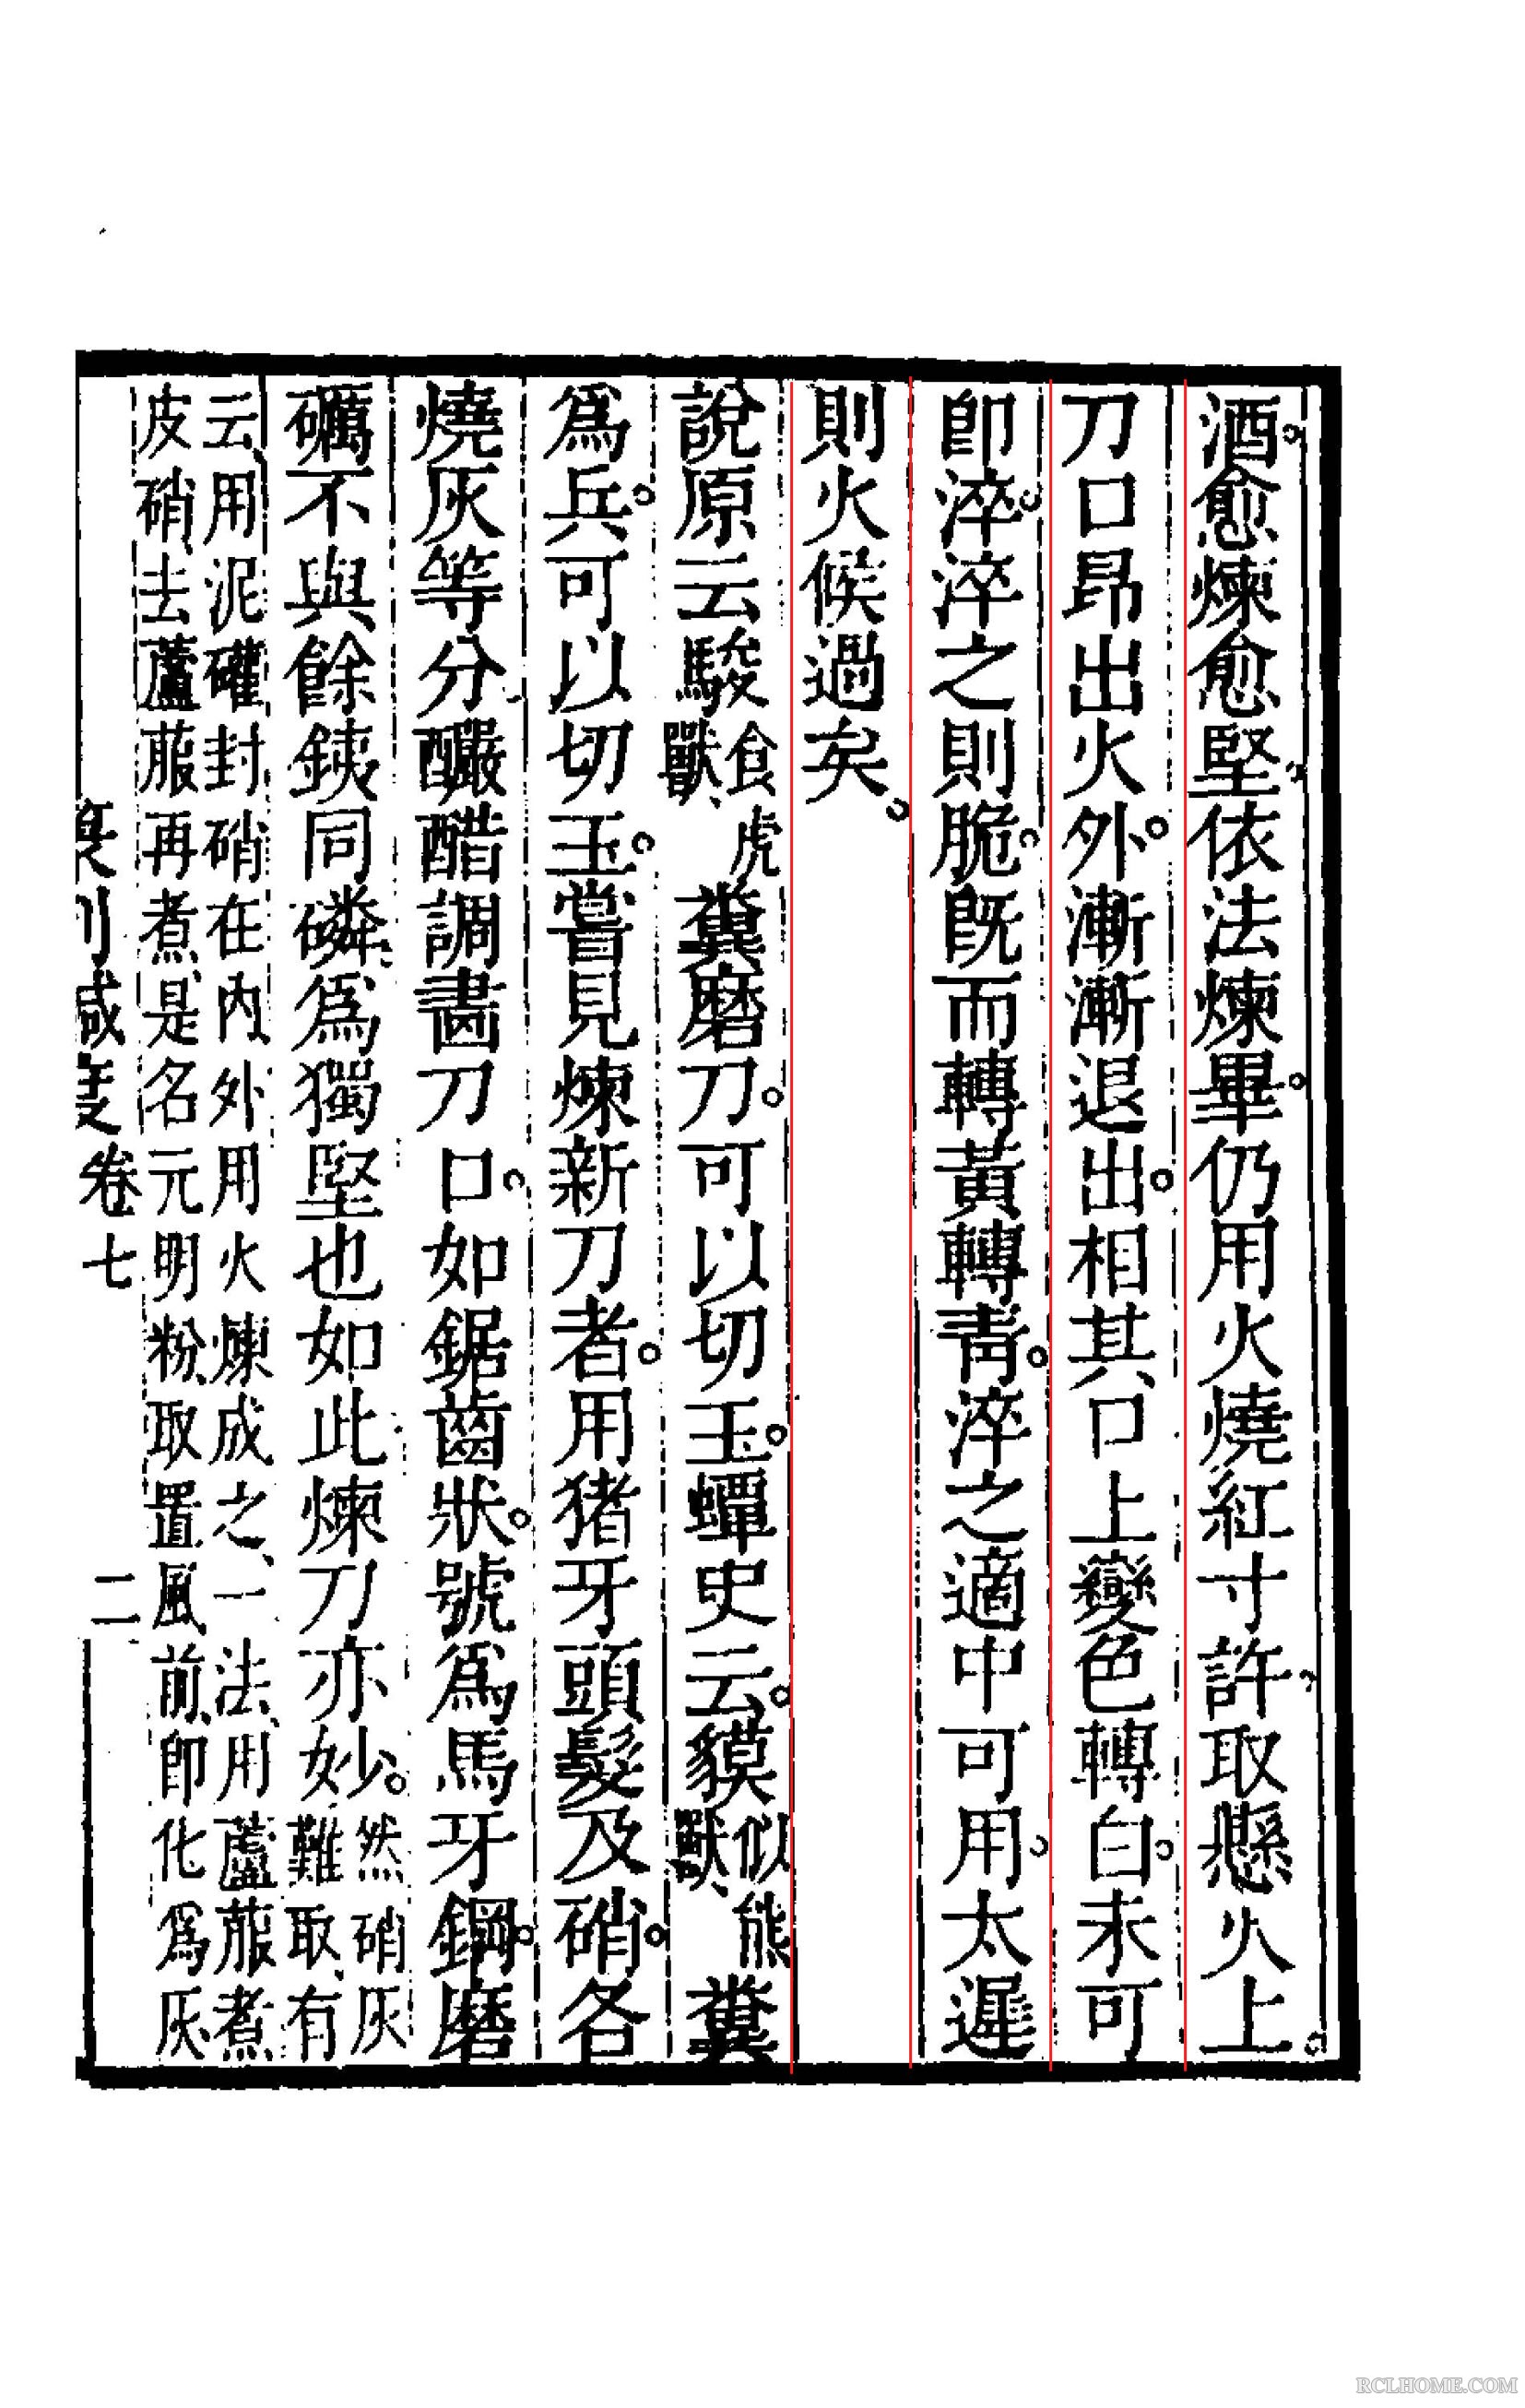 酒。愈煉愈堅、依法煉畢。仍用火燒紅寸許、取懸火上。
刀口昂出火外。漸漸退出。相其口上變色轉白、未可
卽淬。淬之則脆。旣而轉黃轉靑。淬之適中可用、太遲
則火候過矣。
說原云駿食虎獸、糞磨刀。可以切玉。蟫史云。貘似熊獸、糞
爲兵。可以切玉。嘗見煉新刀者。用猪牙頭髮及硝。各
燒灰等分、釅醋調畵刀口。如鋸齒狀。號爲馬牙鋼。磨
礪不與餘銕同磷、爲獨堅也如此煉刀亦妙。然硝灰難取、有
云、用泥礶封硝在內外用火煉成之、一法、用蘆菔煮
皮硝、去蘆菔再煮、是名元明粉、取置風前、卽化爲灰
篆刻鍼度卷七
二
RCLHOME.COM